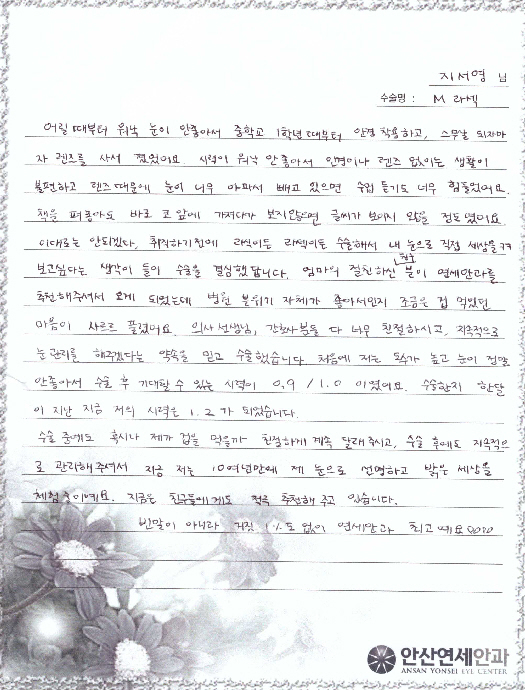 지서영 님
수술명 : M 라섹
어릴때부터 워낙 눈이 안좋아서 중학교 1학년때부터 안경 착용하고, 스무살 되자마
자 렌즈를 사서 꼈었어요. 시력이 워낙 안좋아서 안경이나 렌즈 없이는 생활이
불편하고 렌즈때문에 눈이 너무 아파서 빼고 있으면 수업 듣기도 너무 힘들었어요.
책을 펴놓아도 바로 코 앞에 가져다가 보지않으면 글씨가 보이지 않을 정도였어요
이대로는 안되겠다, 취직하기전에 라식이든 라섹이든 수술해서 내 눈으로 직접 세상을
보고싶다는 생각이 들어 수술을 결심했답니다. 엄마의 절친하신 분이 연세안과를
추천해주셔서 오게 되었는데 병원 분위기 자체가 좋아서인지 조금은 겁 먹었던
마음이 사르르 풀렸어요. 의사선생님, 간호사분들 다 너무 친절하시고, 지속적으로
눈관리를 해주겠다는 약속을 믿고 수술했습니다. 처음에 저는 도수가 높고 눈이 정말
안좋아서 수술 후 기대할 수 있는 시력이 0.9 / 1.0 이였어요. 수술한지 한달
이 지난 지금 저의 시력은 1.2 가 되었습니다.
수술 중에도 혹시나 제가 겁을 먹을까 친절하게 계속 달래주시고, 수술 후에도 지속적으
로 관리해주셔서 지금 저는 10여년만에 제 눈으로 선명하고 밝은 세상을
체험중이예요. 지금은 친구들에게도 적극 추천해 주고 있습니다.
빈말이 아니라 거짓 1%도 없이 연세안과 최고예요
안산연세안과
ANSAN YONSEI EYE CENTER